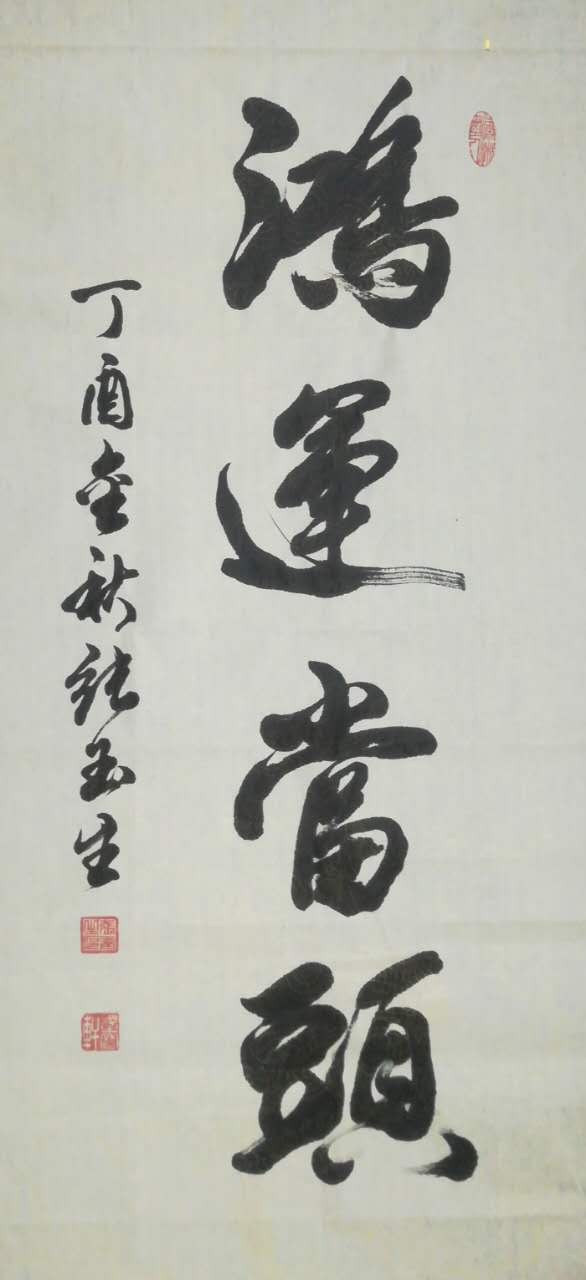 鴻運當頭
丁酉金秋張玉生